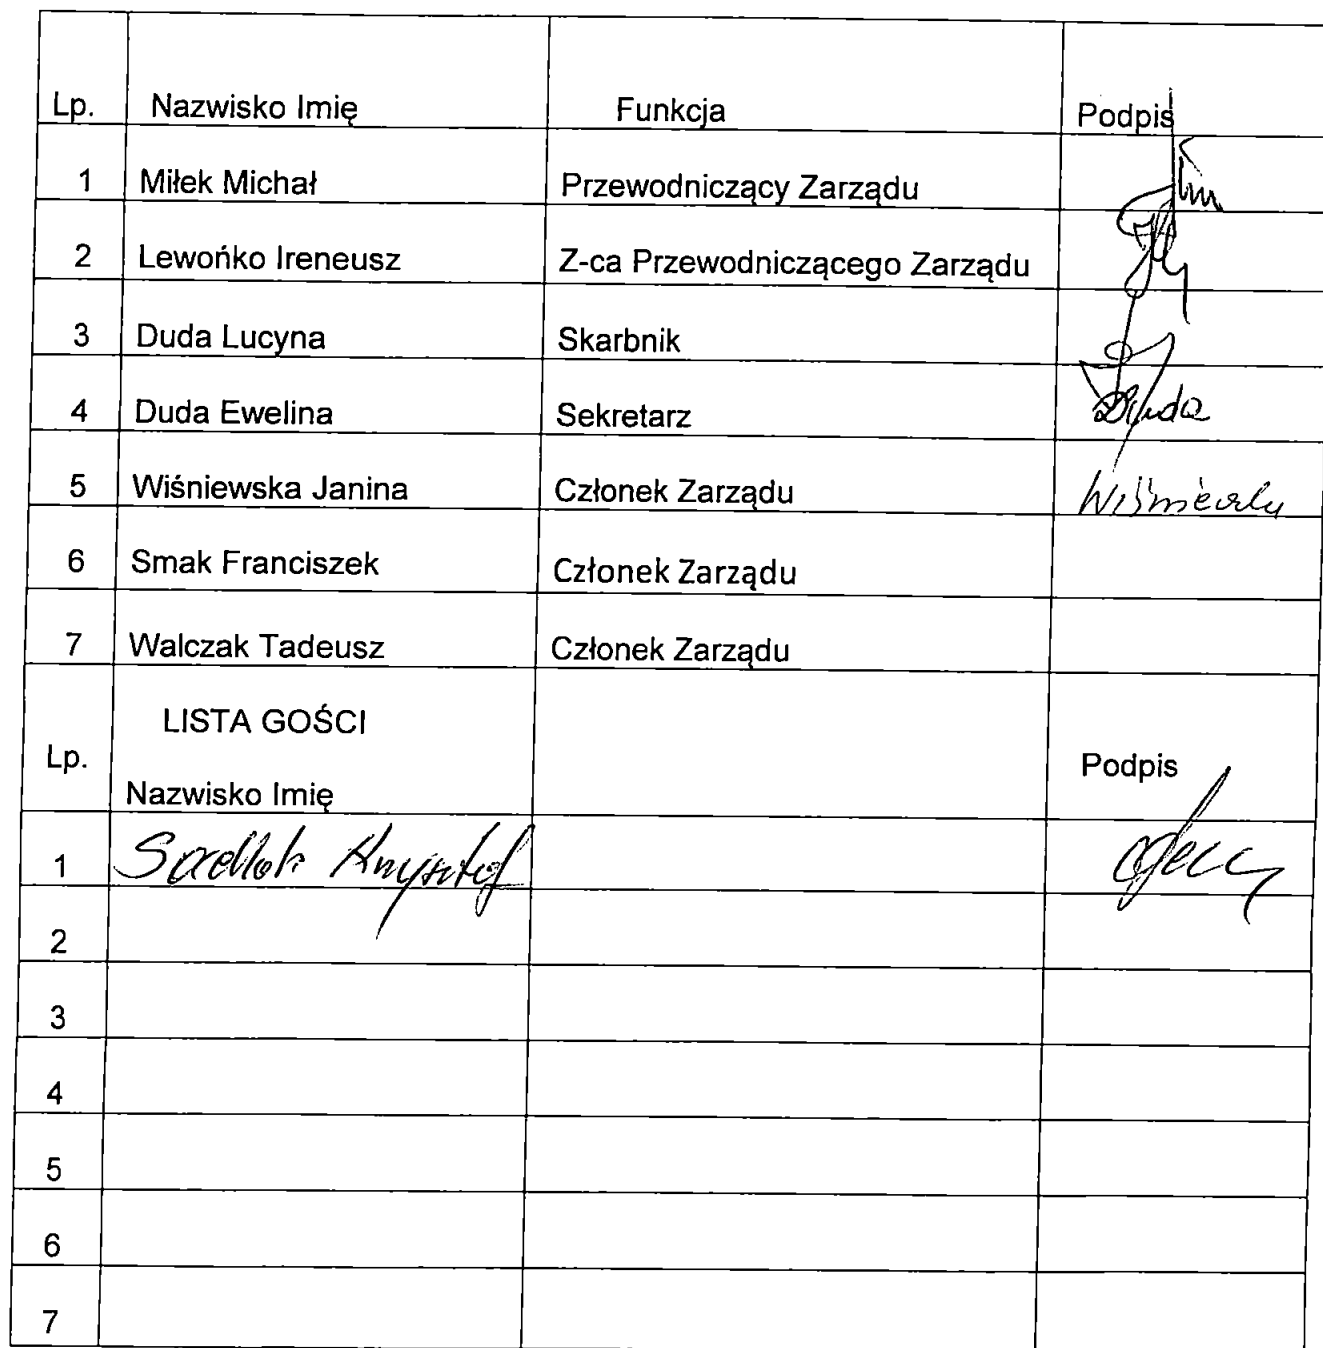 Lp. Nazwisko Imię Funkcja Podpis
1 Miłek Michał Przewodniczący Zarządu
2 Lewońko Ireneusz Z-ca Przewodniczącego Zarządu
3 Duda Lucyna Skarbnik
4 Duda Ewelina Sekretarz Duda
5 Wiśniewska Janina Członek Zarządu
6 Smak Franciszek Członek Zarządu
7 Walczak Tadeusz Członek Zarządu
LISTA GOŚCI
Lp. Podpis
Nazwisko Imię
1 Sadlok Krzysztof
2
3
4
5
6
7